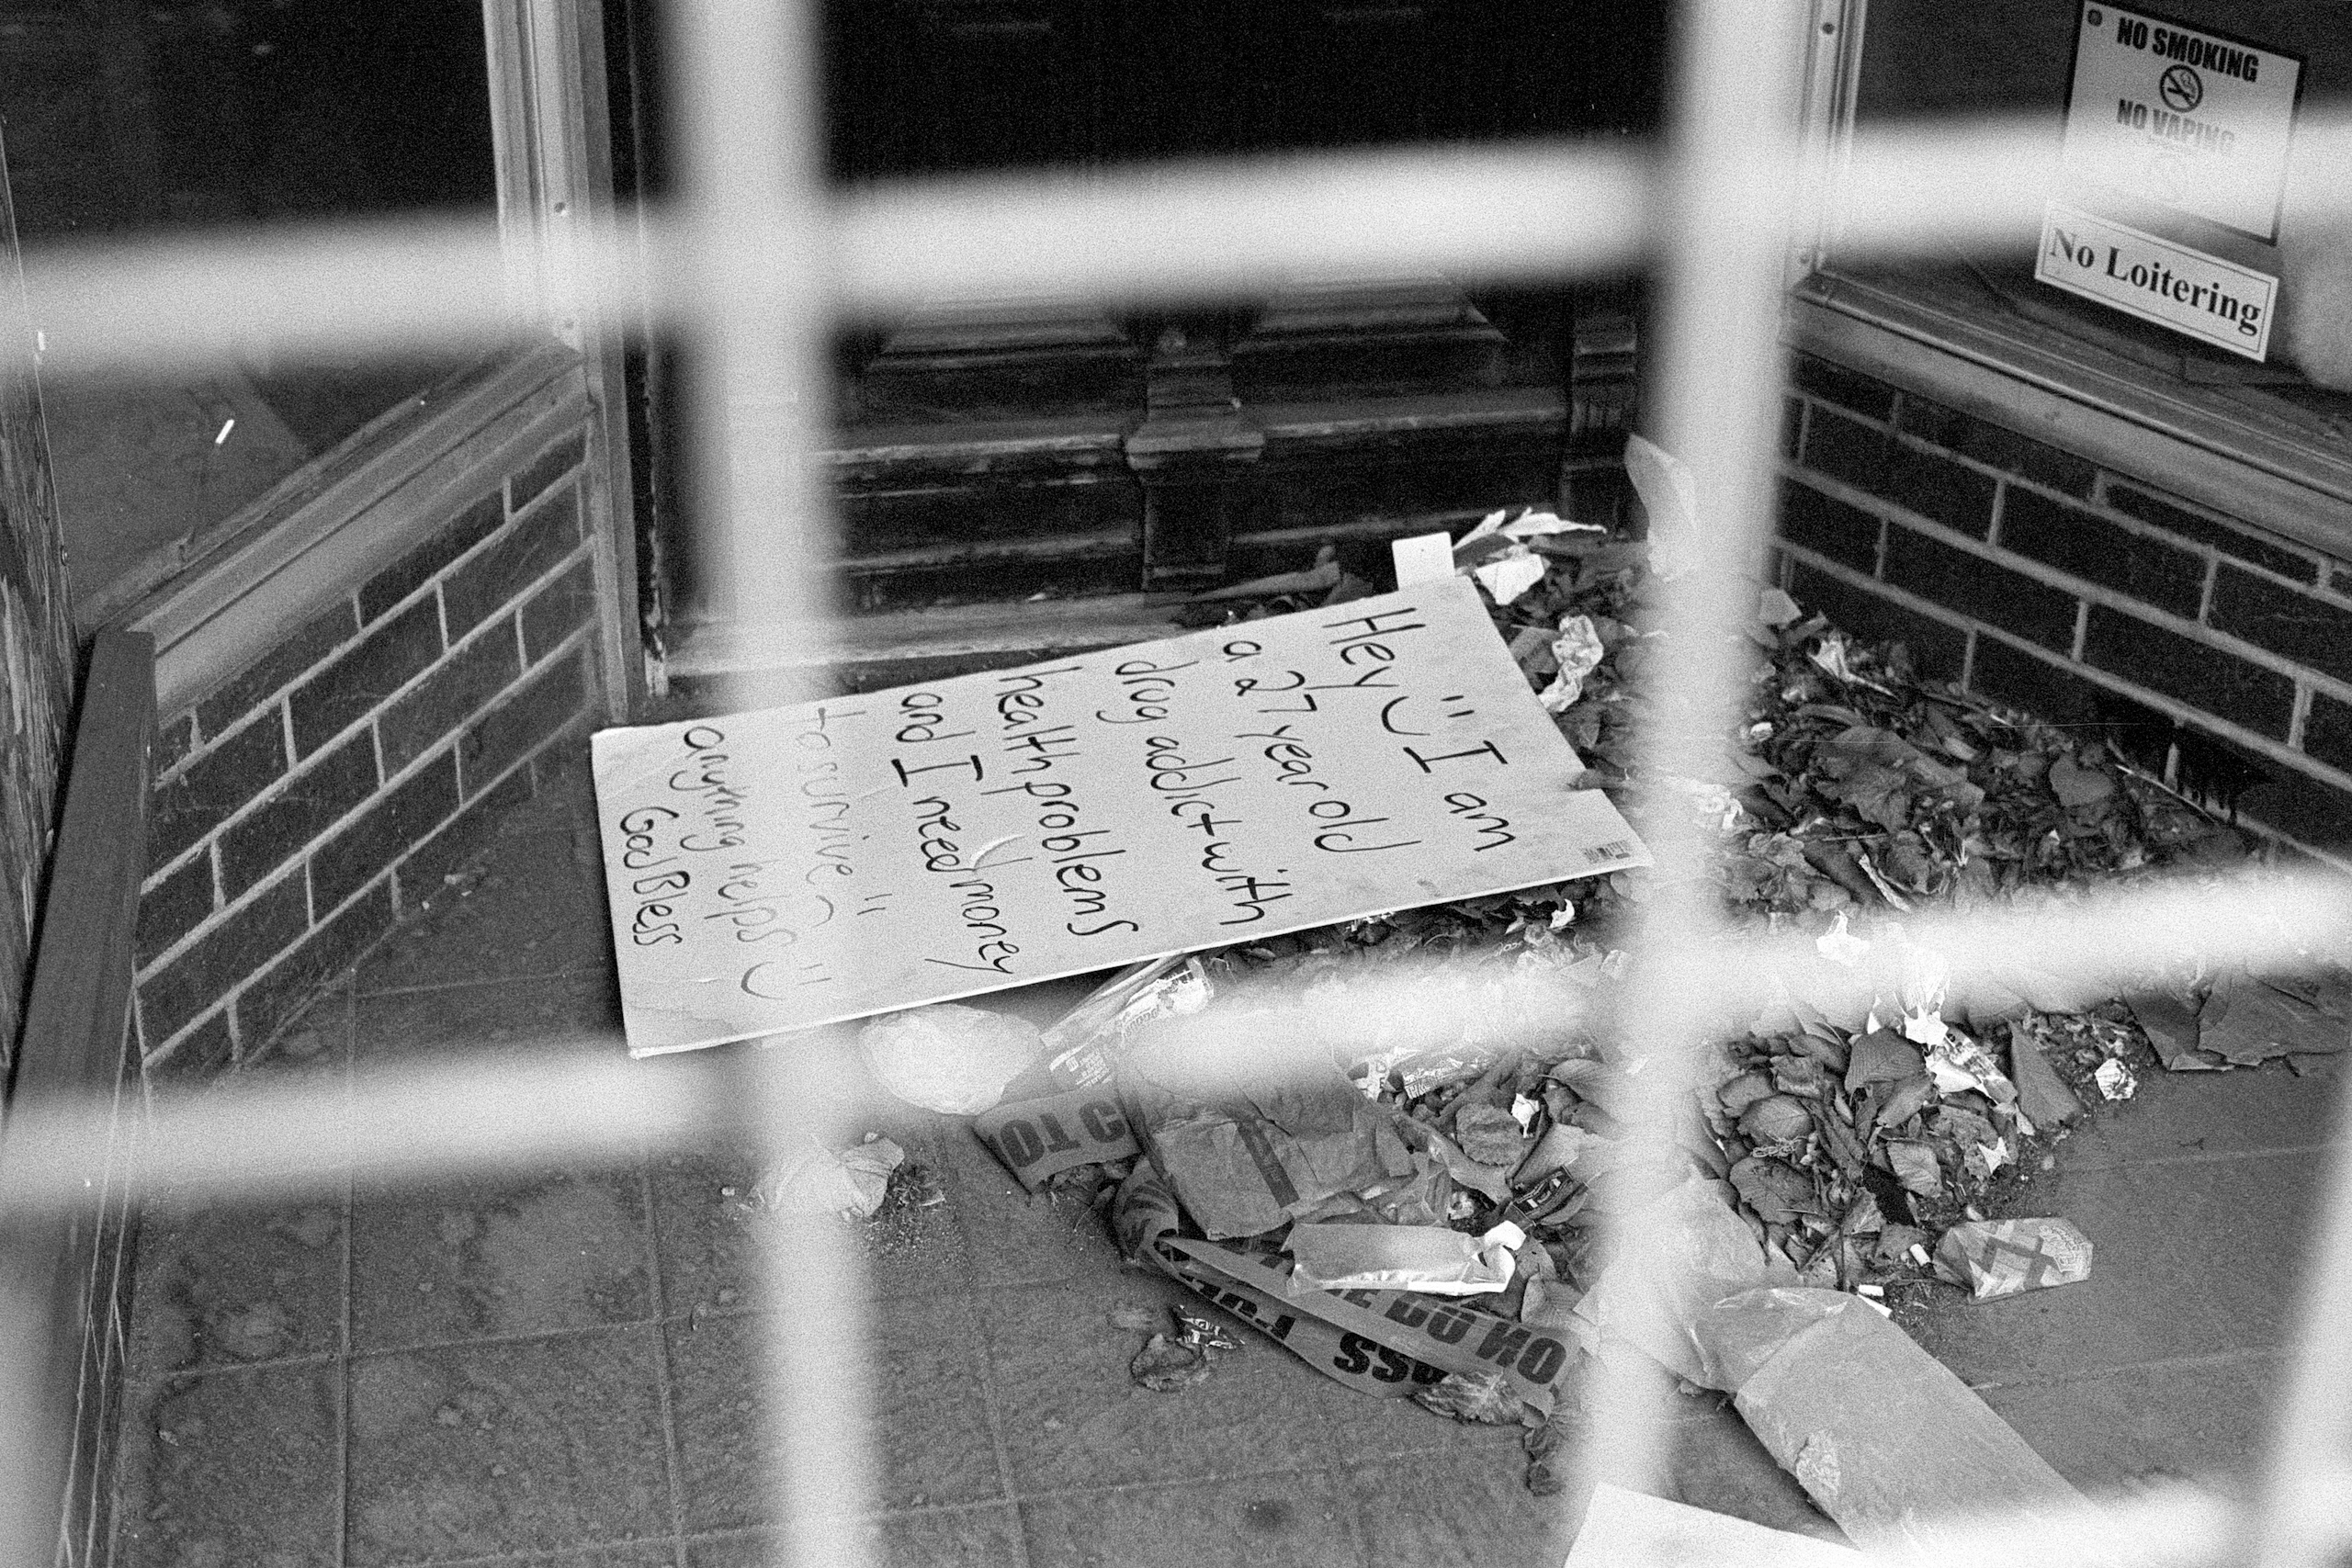 NO SMOKING
NO VAPING
No Loitering
Hey I am
a 27 year old
drug addict with
health problems
and I need money
to survive
anything helps
God Bless
NOT C
DO NO
OSS